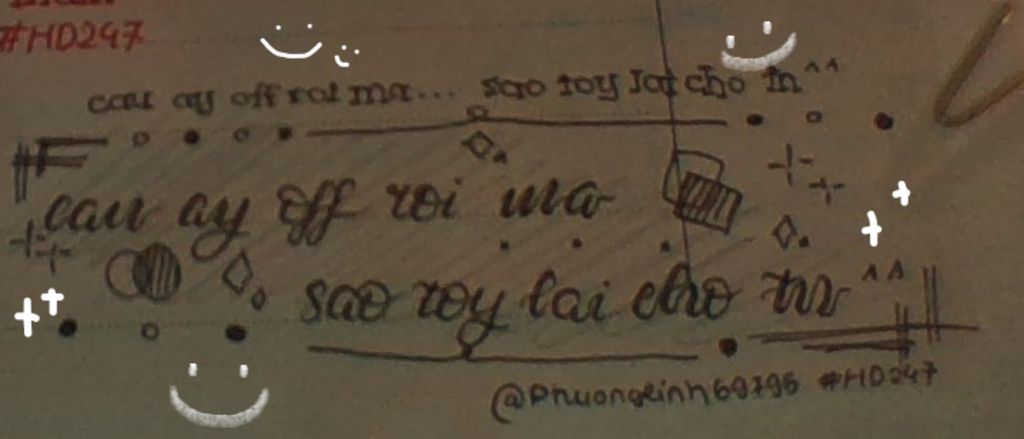 #HD247
cau ay off roi ma... sao roy lai cho tn^^
cau ay off roi ma
...
sao roy lai cho tn^^
@Phuonglinh69796 #HD247